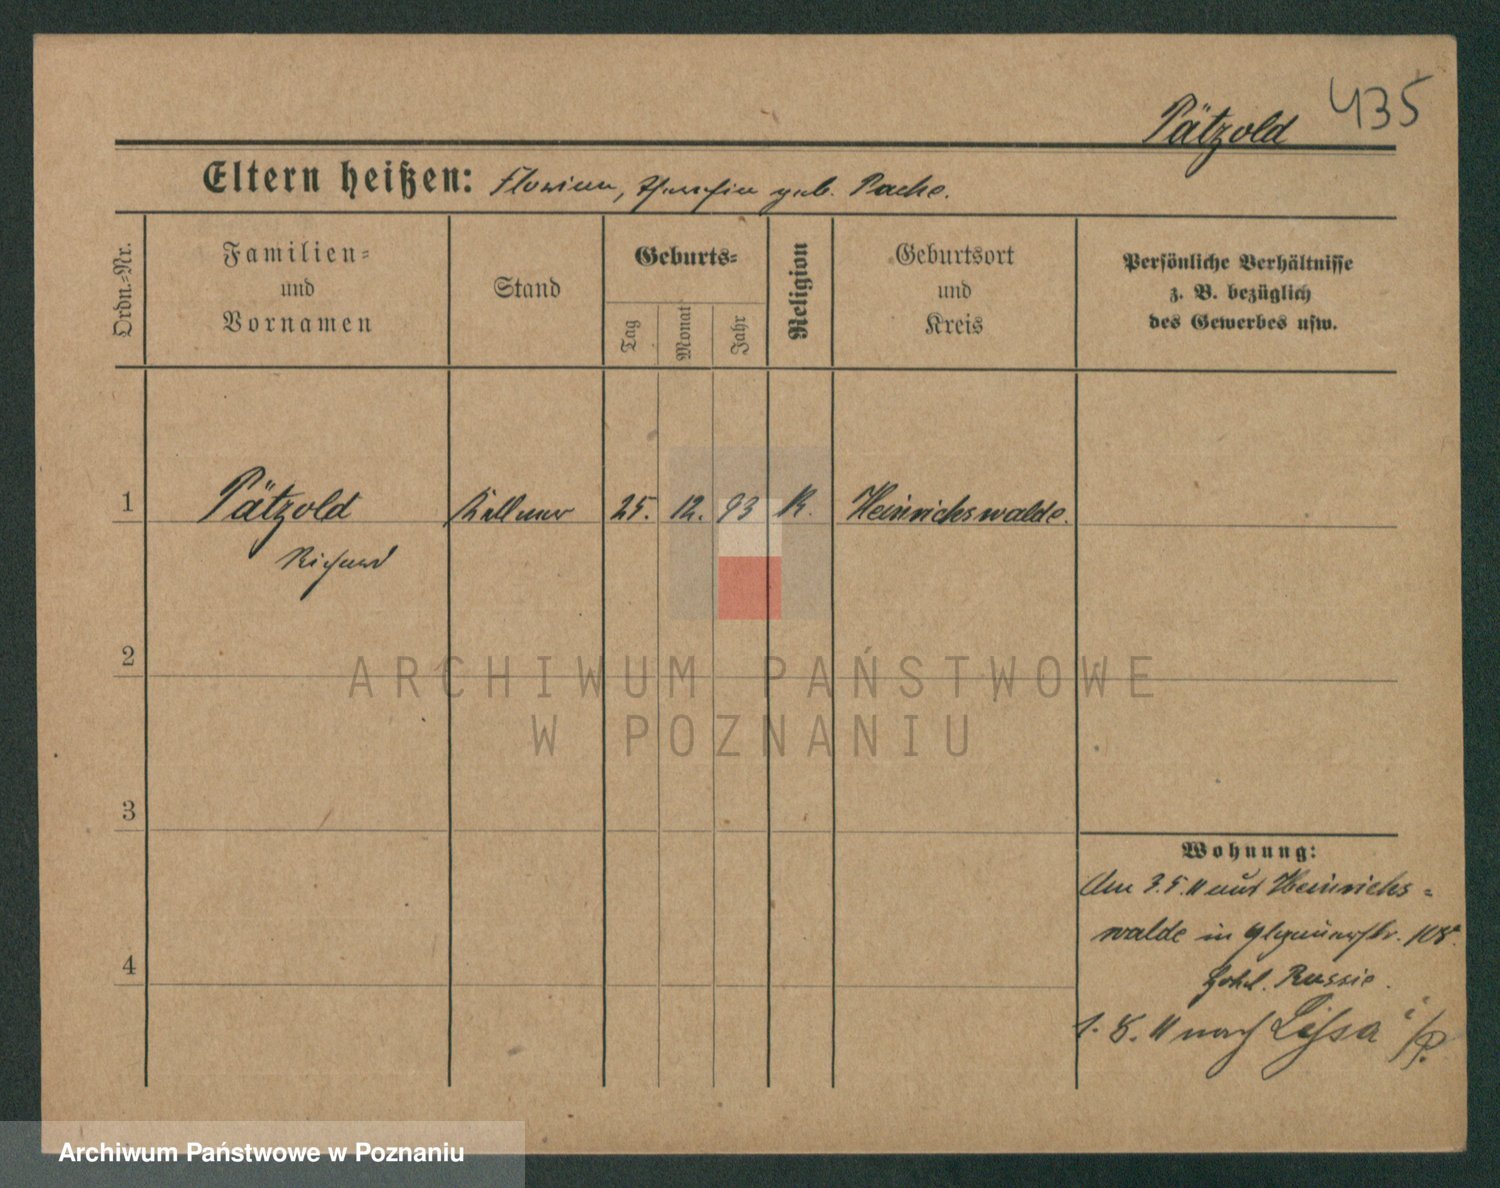 435
Pätzold
Eltern heißen: Florian, geb. Pache.
Ordn.-Nr.
Familien-
und
Vornamen
Stand
Geburts-
Tag
Monat
Jahr
Religion
Geburtsort
und
Kreis
Persönliche Verhältnisse
z. B. bezüglich
des Gewerbes usw.
1 Pätzold Kellner 25. 12. 93 K. Heinrichswalde.
Richard
2
ARCHIWUM PAŃSTWOWE
W POZNANIU
3
Wohnung:
Am 3.5.11 aus Heinrichs-
walde in 108a
4
Hotel. Russie.
1. 8. 11 nach Lissa i/P.
Archiwum Państwowe w Poznaniu